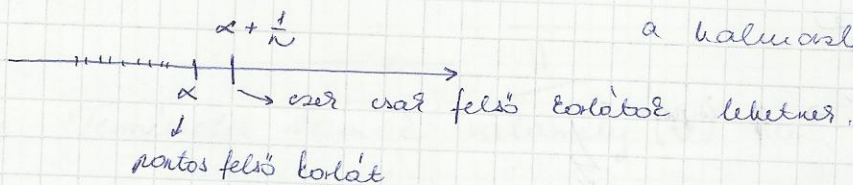 α + 1/n
a halmazb
α
→ ezek csak felső korlátok lehetnek.
↓
pontos felső korlát